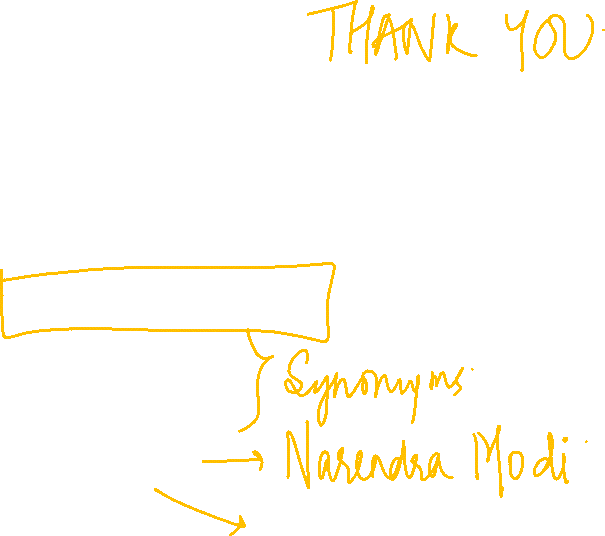 THANK YOU.
Synonyms.
Narendra Modi.